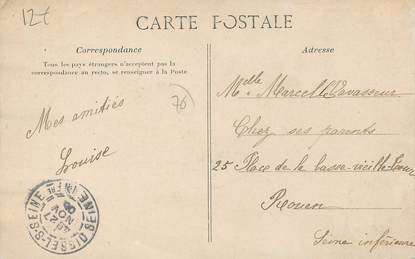 12€
CARTE POSTALE
Correspondance
Tous les pays étrangers n'acceptent pas la
correspondance au recto, se renseigner à la Poste
Adresse
76
Mes amitiés
Louise
Melle Marcelle Levasseur
Chez ses parents
25 Place de la basse-vieille-Tour
Rouen
Seine inférieure
OISSEL-S-SEINE
SEINE INFRE
NOV